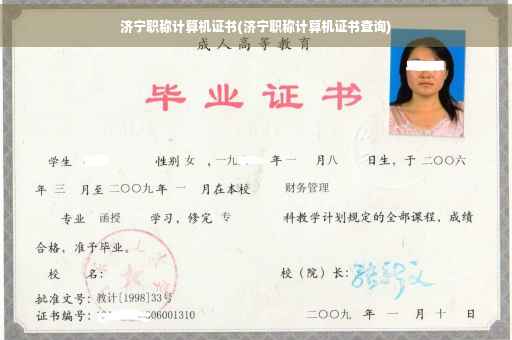 济宁职称计算机证书(济宁职称计算机证书查询)
成人高等教育
毕业证书
学生 性别 女 ，一九 年 一 月 八 日生，于 二〇〇六
年 三 月至 二〇〇九 年 一 月在本校 财务管理
专业 函授 学习，修完 专 科教学计划规定的全部课程，成绩
合格，准予毕业。
校 名： 校（院）长：
批准文号：教计[1998]33号
证书编号： 06001310 二〇〇九 年 一 月 十 日